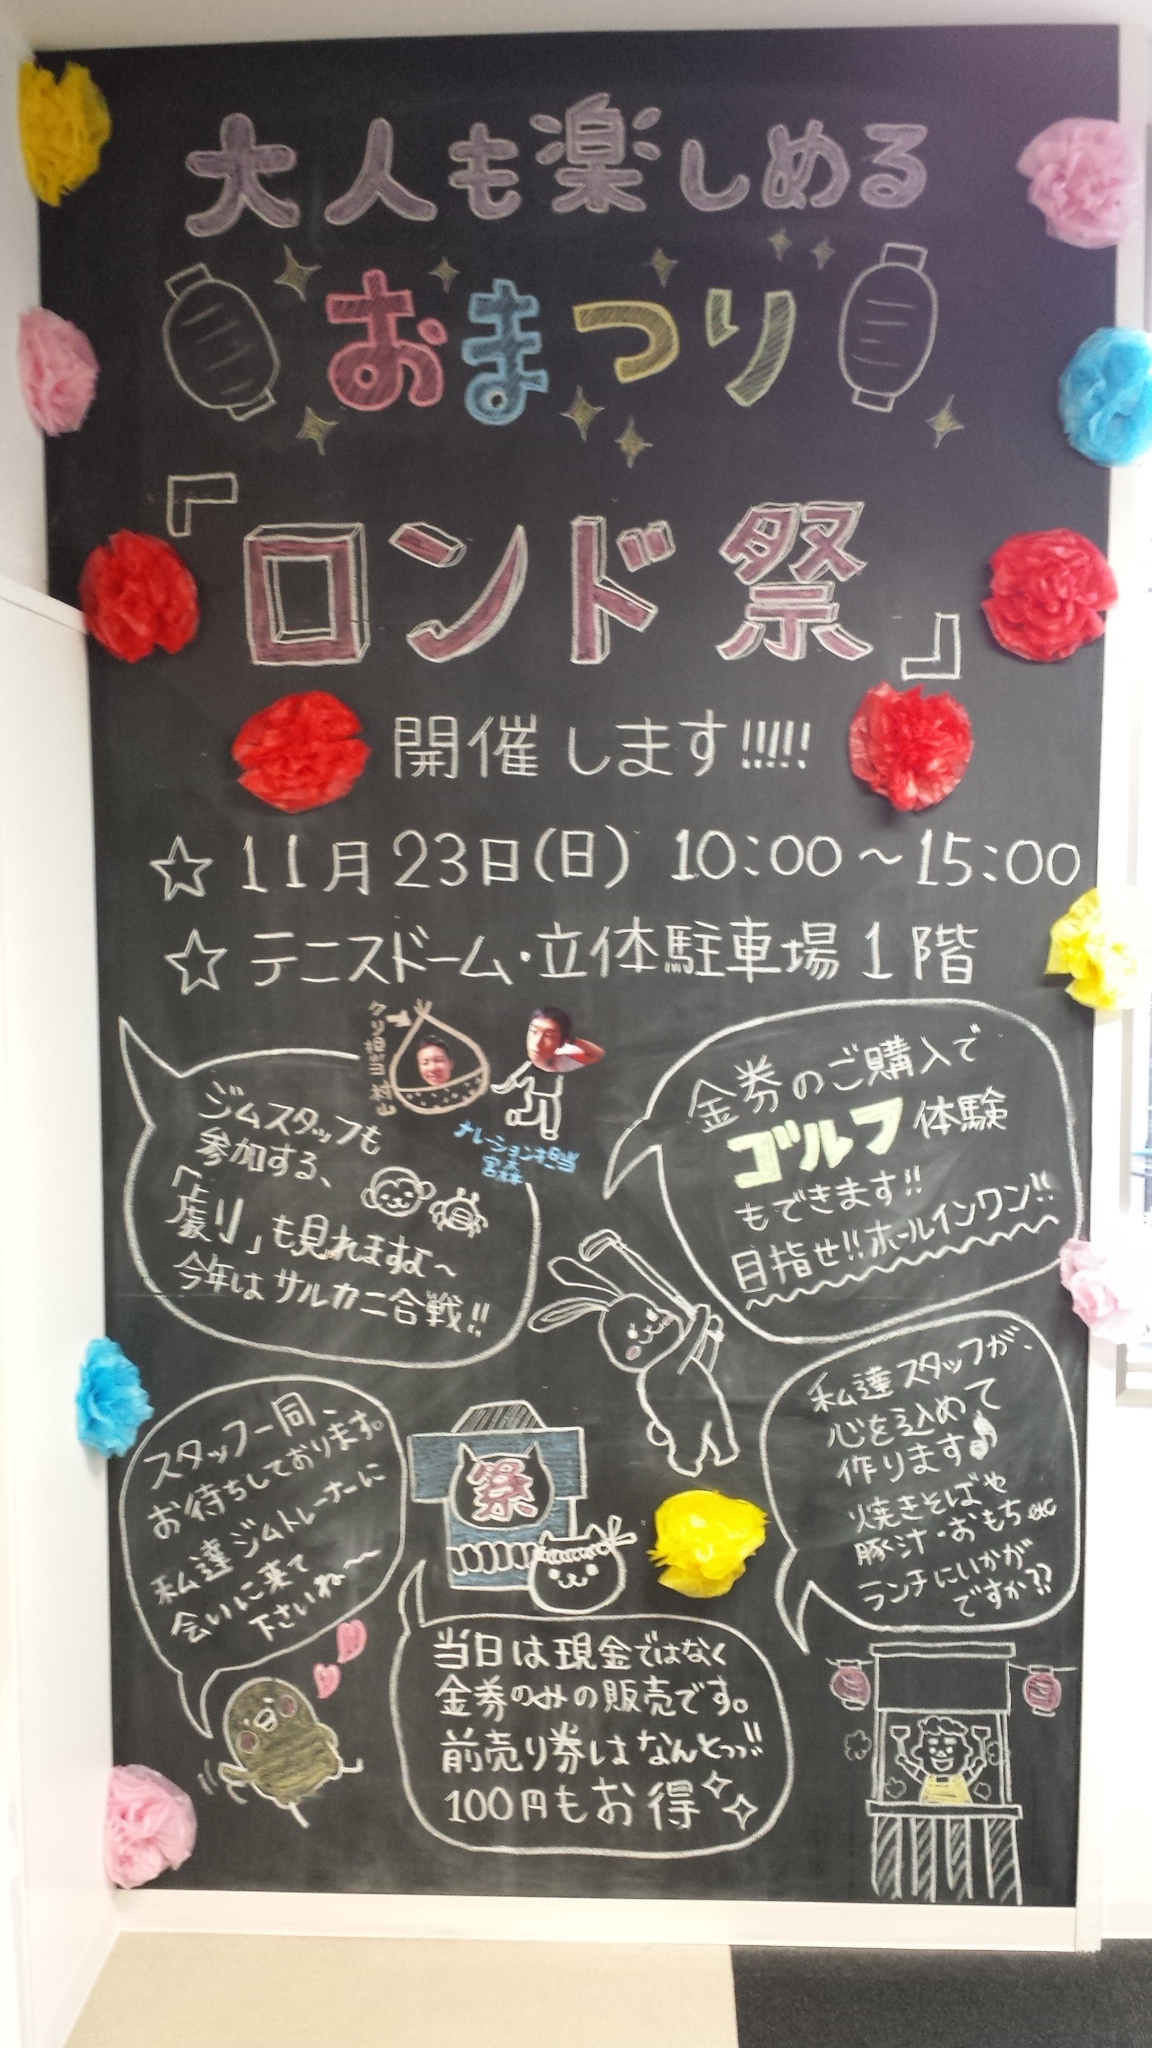 大人も楽しめる
おまつり
『ロンド祭』
開催します!!!!!
☆11月23日(日) 10:00～15:00
☆テニスドーム・立体駐車場1階
クリ担当 村山
ナレーション担当
宮森
ジムスタッフも
参加する、
「劇」も見れますよ～
今年はサルカニ合戦!!
金券のご購入で
ゴルフ体験
もできます!!
目指せ!!ホールインワン!!
スタッフ一同、
お待ちしております。
私達ジムトレーナーに
会いに来て
下さいね～
祭
私達スタッフが、
心を込めて
作ります♪
焼きそばや
豚汁・おもちetc
ランチにいかが
ですか??
当日は現金ではなく
金券のみの販売です。
前売り券はなんとっ!!
100円もお得